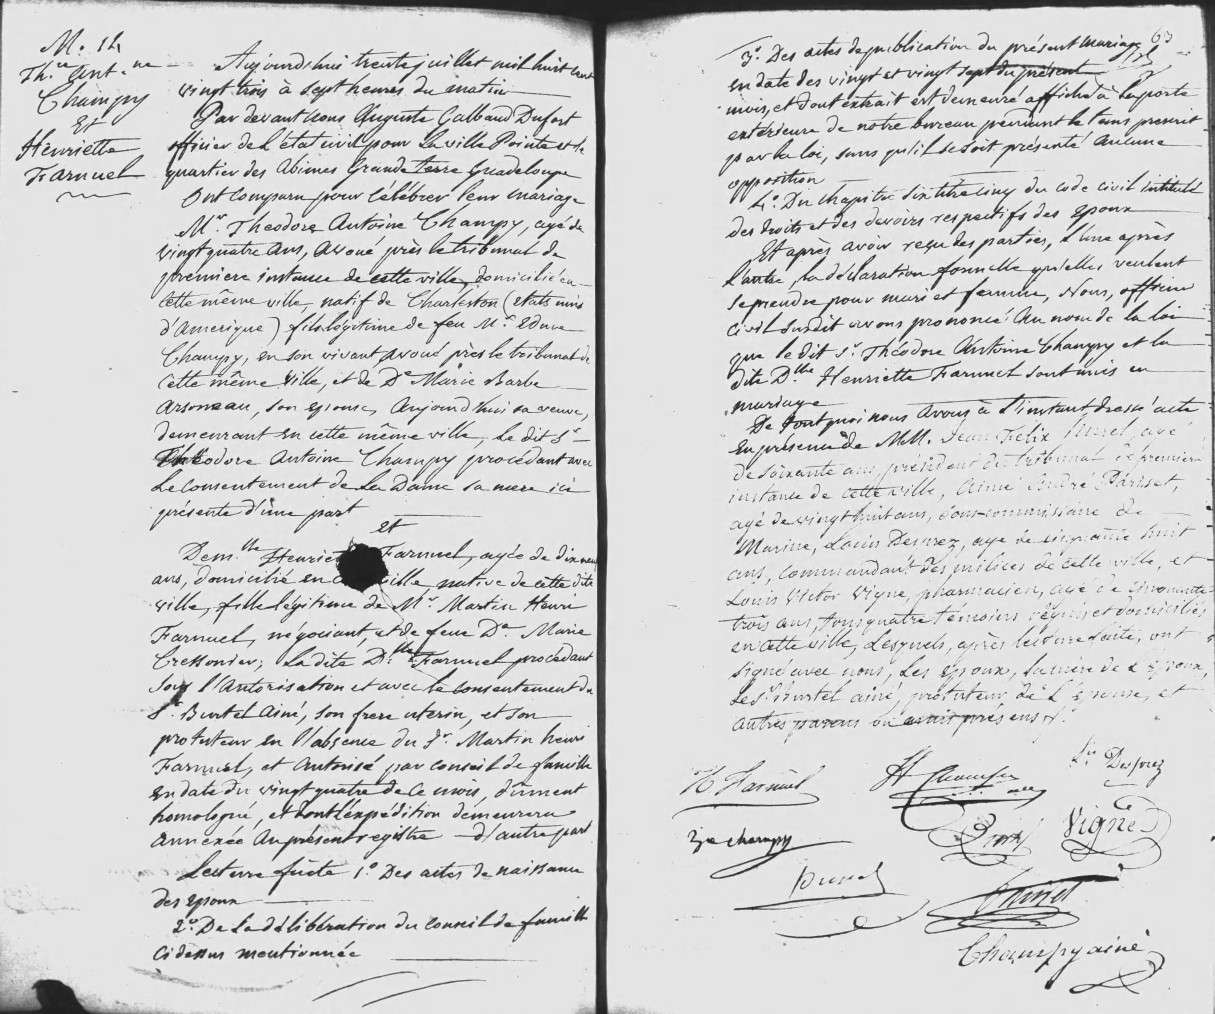 M. 14
Th.re Ant.ne
Champy
Et
Henriette
Farmuel
Aujourd'hui trente juillet mil huit cent
vingt trois à sept heures du matin
Par devant nous Auguste Galbaud Dufort
officier de l'état civil pour la ville Pointe et le
quartier des Abimes Grande terre Guadeloupe
Ont comparu pour célébrer leur mariage
M.r Theodore Antoine Champy, agé de
vingt quatre ans, avoué près le tribunal de
premiere instance de cette ville, domicilié en
cette même ville, natif de Charleston (états unis
d'Amerique) fils légitime de feu M.r Edme
Champy, en son vivant avoué près le tribunal de
cette même ville, et de D.e Marie Barbe
Arsoneau, son epouse, Aujourd'hui sa veuve,
demeurant en cette même ville, le dit S.r
Théodore Antoine Champy procédant avec
le consentement de la Dame sa mere ici
présente d'une part
Et
Dem.lle Henriette Farmuel, agée de dix neuf
ans, domicilié en ville, native de cette dite
ville, fille légitime de M.r Martin Henri
Farmuel, négociant, et de feue D.e Marie
Cressonier; la dite D.lle Farmuel procédant
sous l'Autorisation et avec le consentement du
S.r Burtel Ainé, son frere uterin, et son
protuteur en l'absence du S.r Martin henri
Farmuel, et autorisé par conseil de famille
en date du vingt quatre de ce mois, dûment
homologué, et dont l'expédition demeurera
annexée au présent registre d'autre part
Lecture faite 1.o Des actes de naissance
des epoux
2.o De la délibération du conseil de famille
ci dessus mentionnée
63
3.o Des actes de publication du présent mariage
en date des vingt et vingt sept du présent
mois, et dont extrait est demeuré affiché à la porte
extérieure de notre bureau pendant le tems prescrit
par la loi, sans qu'il se soit présenté aucune
opposition
4.o Du chapitre six titre cinq du code civil intitulé
des droits et des devoirs respectifs des epoux
Et après avoir reçu des parties, l'une après
l'autre, la déclaration formelle qu'elles veulent
se prendre pour mari et femme, Nous, officier
civil susdit avons prononcé au nom de la loi
que le dit S.r Théodore Antoine Champy et la
dite D.lle Henriette Farmuel sont unis en
mariage
De tout quoi nous avons à l'instant dressé acte
en présence de MM. Jean Felix agé
de soixante ans, président du tribunal de premiere
instance de cette ville, Aimé André Pariset,
agé de vingt huit ans, sous-commissaire de
Marine, Louis Desprez, agé de cinquante huit
ans, commandant des milices de cette ville, et
Louis Victor Vigne, pharmacien, agé de cinquante
trois ans, tous quatre témoins requis et domiciliés
en cette ville, Lesquels, après lecture faite, ont
signé avec nous, les epoux, la mère de l'Epoux,
le S.r Burtel ainé, protuteur de l'Epouse, et
autres parens ou amis présens
H Farmuel
Champy
Desprez
Ve champy
Vigne
Champy ainé